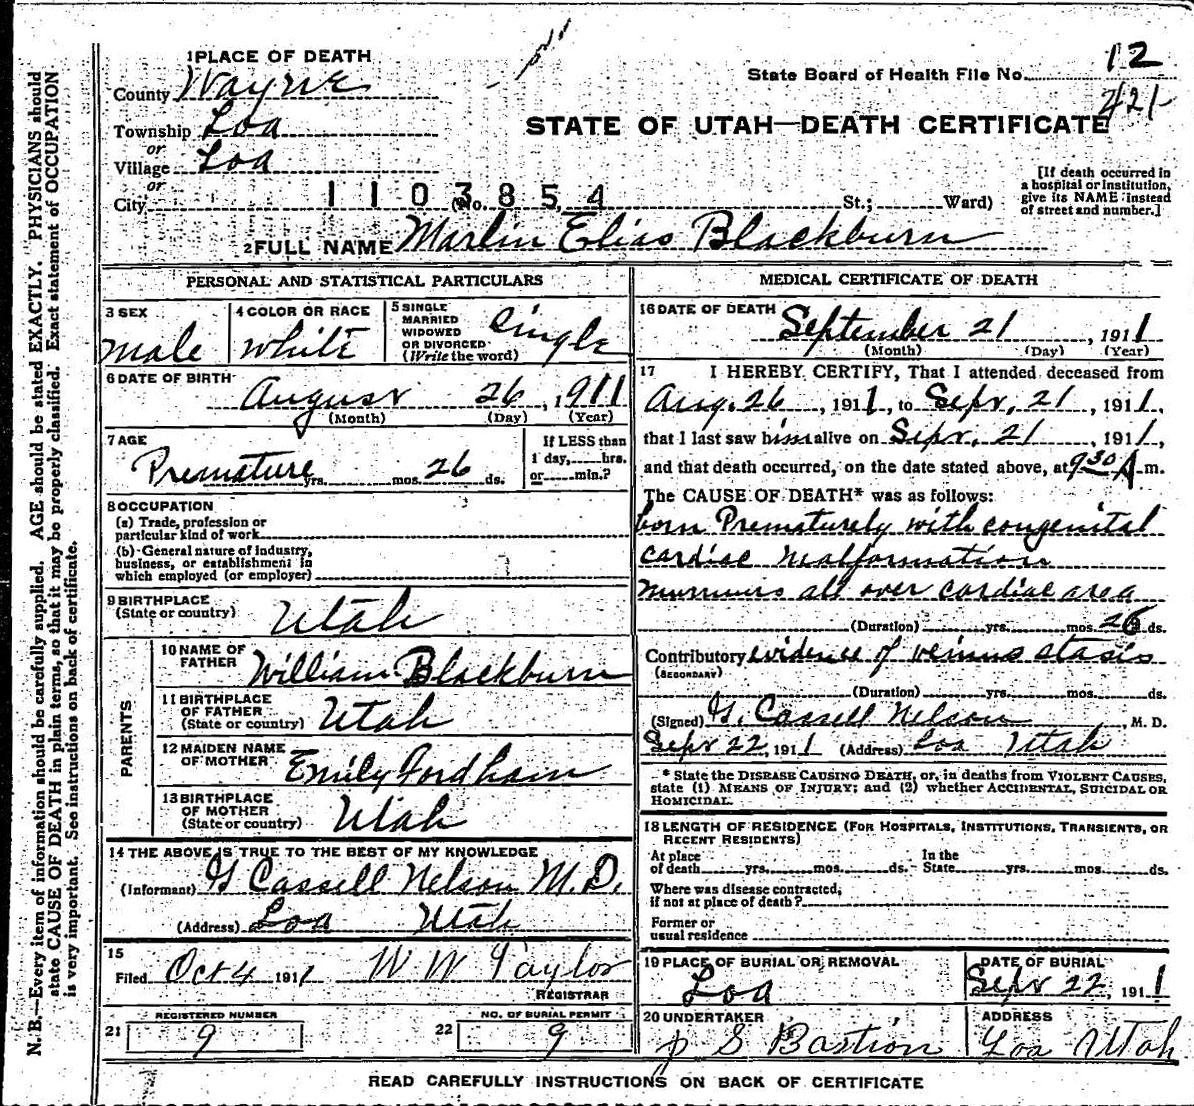 12
State Board of Health File No.
421
1 PLACE OF DEATH
County Wayne
Township Loa
or
Village Loa
or
City
STATE OF UTAH—DEATH CERTIFICATE
[If death occurred in
a hospital or institution,
give its NAME instead
of street and number.]
1103854
(No. St.; Ward)
2 FULL NAME Marlin Elias Blackburn
PERSONAL AND STATISTICAL PARTICULARS
3 SEX Male
4 COLOR OR RACE White
5 SINGLE
MARRIED
WIDOWED
OR DIVORCED
(Write the word) Single
6 DATE OF BIRTH
August 26, 1911
(Month) (Day) (Year)
7 AGE
Premature yrs. mos. 26 ds.
If LESS than
1 day, hrs.
or min.?
8 OCCUPATION
(a) Trade, profession or
particular kind of work
(b) General nature of industry,
business, or establishment in
which employed (or employer)
9 BIRTHPLACE
(State or country) Utah
PARENTS
10 NAME OF
FATHER William Blackburn
11 BIRTHPLACE
OF FATHER
(State or country) Utah
12 MAIDEN NAME
OF MOTHER Emily Fordham
13 BIRTHPLACE
OF MOTHER
(State or country) Utah
14 THE ABOVE IS TRUE TO THE BEST OF MY KNOWLEDGE
(Informant) G Cassell Nelson M.D.
(Address) Loa Utah
15
Filed Oct 4 1911 W W Taylor
REGISTRAR
21 REGISTERED NUMBER
9
22 NO. OF BURIAL PERMIT
9
MEDICAL CERTIFICATE OF DEATH
16 DATE OF DEATH
September 21, 1911
(Month) (Day) (Year)
17 I HEREBY CERTIFY, That I attended deceased from
Aug. 26, 1911, to Sept. 21, 1911,
that I last saw him alive on Sept. 21, 1911,
and that death occurred, on the date stated above, at 9 30 A m.
The CAUSE OF DEATH* was as follows:
born Prematurely with congenital
cardiac malformation
murmurs all over cardiac area
(Duration) yrs. mos. 26 ds.
Contributory evidence of venous stasis
(SECONDARY)
(Duration) yrs. mos. ds.
(Signed) G. Cassell Nelson, M. D.
Sept 22, 1911 (Address) Loa Utah
* State the DISEASE CAUSING DEATH, or, in deaths from VIOLENT CAUSES,
state (1) MEANS OF INJURY; and (2) whether ACCIDENTAL, SUICIDAL OR
HOMICIDAL.
18 LENGTH OF RESIDENCE (FOR HOSPITALS, INSTITUTIONS, TRANSIENTS, OR
RECENT RESIDENTS)
At place
of death yrs. mos. ds. In the
State yrs. mos. ds.
Where was disease contracted,
if not at place of death?
Former or
usual residence
19 PLACE OF BURIAL OR REMOVAL
Loa
DATE OF BURIAL
Sept 22, 1911
20 UNDERTAKER
J S Bastion
ADDRESS
Loa Utah
READ CAREFULLY INSTRUCTIONS ON BACK OF CERTIFICATE
N. B.—Every item of information should be carefully supplied. AGE should be stated EXACTLY. PHYSICIANS should
state CAUSE OF DEATH in plain terms, so that it may be properly classified. Exact statement of OCCUPATION
is very important. See instructions on back of certificate.